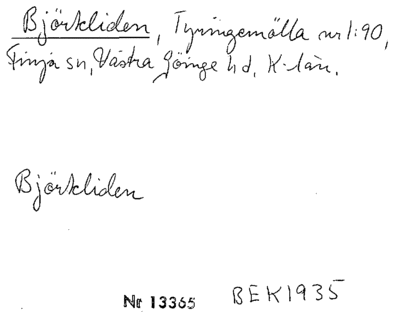 Björkliden, Tyringemölla nr 1:90,
Finja sn, Västra Göinge hd, K-län.
Björkliden
Nr 13365 BEK1935